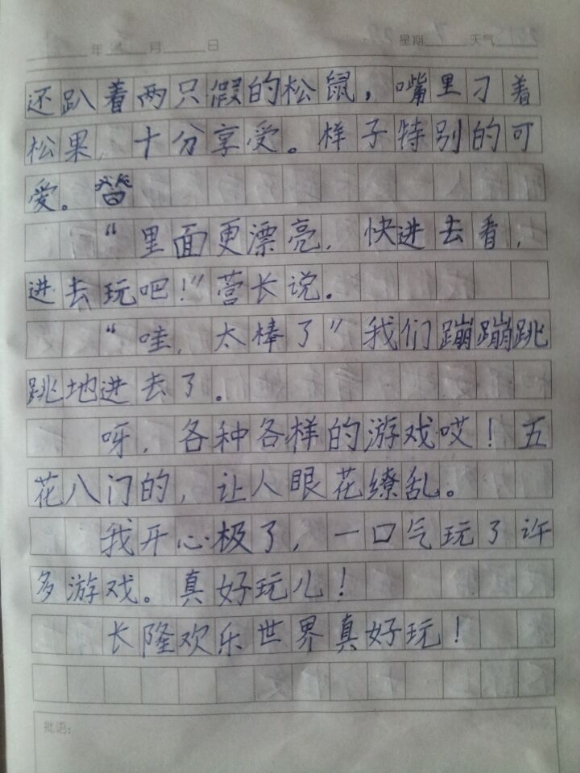 年 月 日 星期 天气
还趴着两只假的松鼠，嘴里刁着
松果，十分享受。样子特别的可
爱。
“里面更漂亮，快进去看，
进去玩吧！”营长说。
“哇，太棒了”我们蹦蹦跳
跳地进去了。
呀，各种各样的游戏哎！五
花八门的，让人眼花缭乱。
我开心极了，一口气玩了许
多游戏。真好玩儿！
长隆欢乐世界真好玩！
批语：